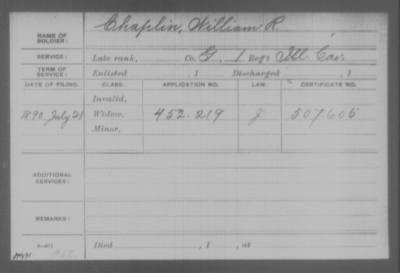 Chaplin, William R.
NAME OF SOLDIER:
SERVICE: Late rank, Co. G, 1 Reg't Ill. Cav.
TERM OF SERVICE: Enlisted , 1 Discharged , 1
DATE OF FILING. CLASS. APPLICATION NO. LAW. CERTIFICATE NO.
Invalid,
1890 July 21 Widow, 452.219 J 507.605
Minor,
ADDITIONAL SERVICES:
REMARKS:
Died , 1 , at